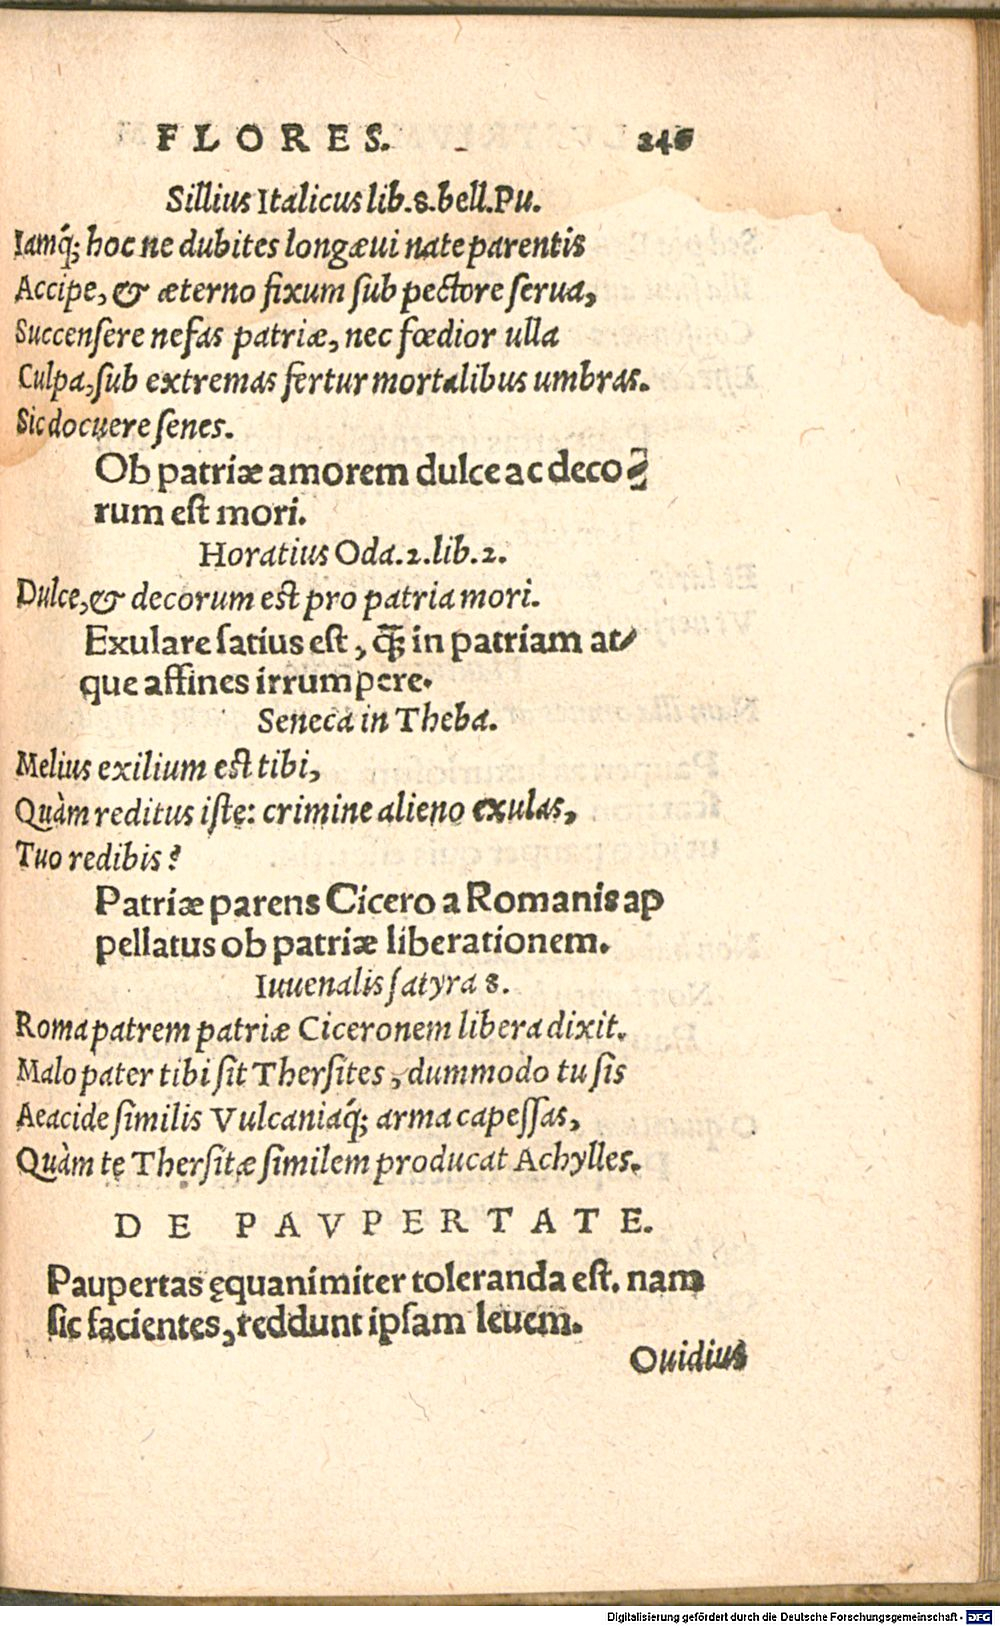 FLORES. 246
Sillius Italicus lib.8.bell.Pu.
Iamq́; hoc ne dubites longæui nate parentis
Accipe, & æterno fixum sub pectore serua,
Succensere nefas patriæ, nec fœdior ulla
Culpa, sub extremas fertur mortalibus umbras.
Sic docuere senes.
Ob patriæ amorem dulce ac deco⸗
rum est mori.
Horatius Oda.2.lib.2.
Dulce, & decorum est pro patria mori.
Exulare satius est, q̄; in patriam at⸗
que affines irrumpere.
Seneca in Theba.
Melius exilium est tibi,
Quàm reditus istę: crimine alieno exulas,
Tuo redibis?
Patriæ parens Cicero a Romanis ap
pellatus ob patriæ liberationem.
Iuuenalis satyra 8.
Roma patrem patriæ Ciceronem libera dixit.
Malo pater tibi sit Thersites, dummodo tu sis
Aeacide similis Vulcaniaq́; arma capessas,
Quàm tę Thersitæ similem producat Achylles.
DE PAVPERTATE.
Paupertas ęquanimiter toleranda est. nam
sic facientes, reddunt ipsam leuem.
Ouidius
Digitalisierung gefördert durch die Deutsche Forschungsgemeinschaft - DFG